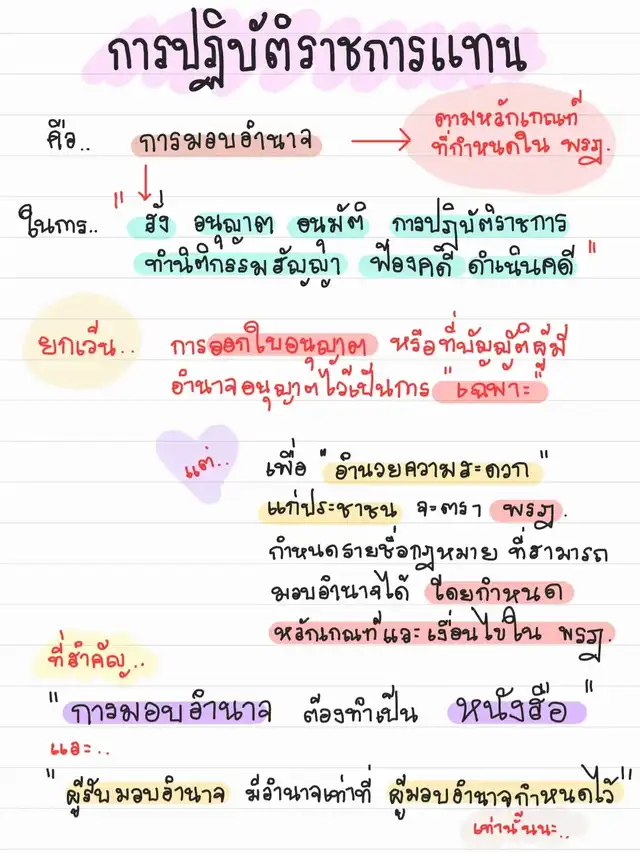 การปฏิบัติราชการแทน
คือ.. การมอบอำนาจ → ตามหลักเกณฑ์
ที่กำหนดใน พรฎ.
ในการ.. "สั่ง อนุญาต อนุมัติ การปฏิบัติราชการ
ทำนิติกรรมสัญญา ฟ้องคดี ดำเนินคดี"
ยกเว้น.. การออกใบอนุญาต หรือที่บัญญัติผู้มี
อำนาจอนุญาตไว้เป็นการ "เฉพาะ"
แต่.. เพื่อ "อำนวยความสะดวก"
แก่ประชาชน จะตรา พรฎ.
กำหนดรายชื่อกฎหมาย ที่สามารถ
มอบอำนาจได้ โดยกำหนด
หลักเกณฑ์และเงื่อนไขใน พรฎ.
ที่สำคัญ..
"การมอบอำนาจ ต้องทำเป็น หนังสือ"
และ..
"ผู้รับมอบอำนาจ มีอำนาจเท่าที่ ผู้มอบอำนาจกำหนดไว้"
เท่านั้นนะ..